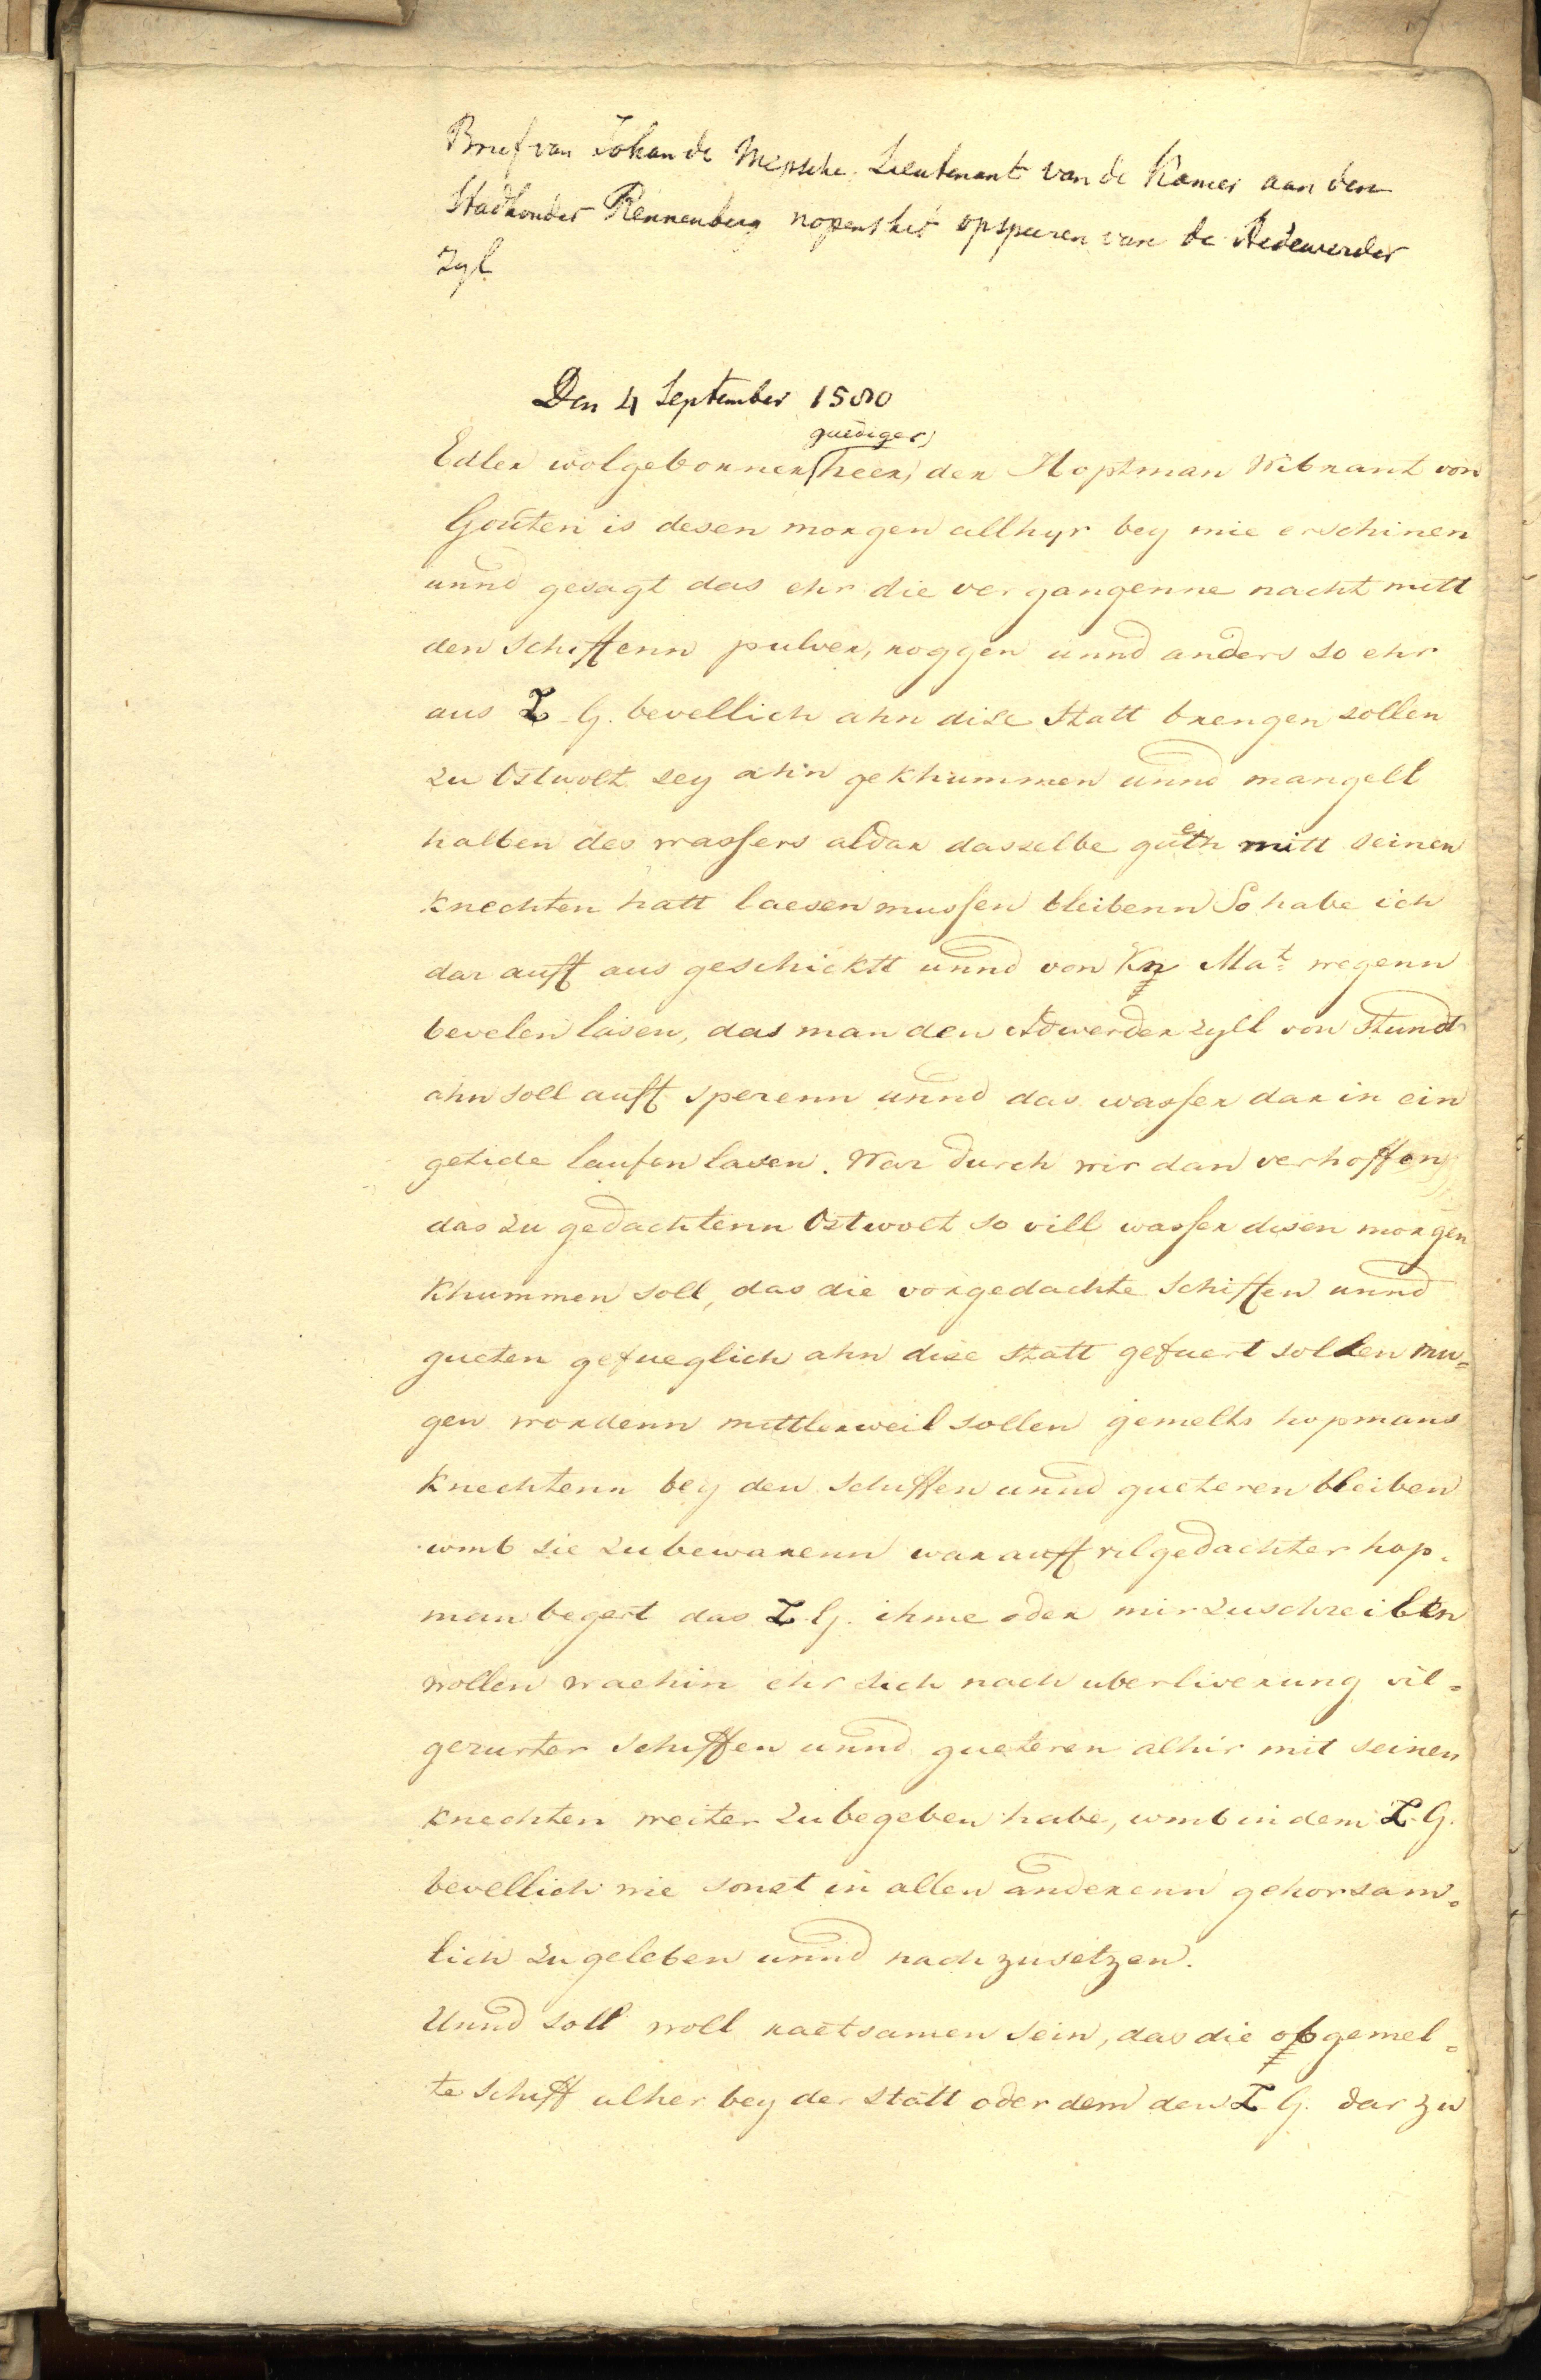 Brief van Johan de Mepsche Lieutenant van de Kamer aan den
Stadhouder Rennenberg nopens het opsperen van de Aedewerder
Zyl
Den 4 September 1580
gnediger
Edler wolgebornner heer, der Hoptman Wibrant von
Gouten is desen morgen allhyr bey mie erschinen
unnd gesagt das ehr die vergangenne nacht mitt
den schiffenn pulver, roggen unnd anders so ehr
aus E. G. bevellich ahn dise Statt brengen sollen
zu Ostwolt sey ahn gekhummen unnd mangell
halben des wassers aldar dasselbe gueth mitt seinen
knechten hatt laesen mussen bleibenn So habe ich
dar auff aus geschicktt unnd von Kn Mat. wegenn
bevelen lasen, das man den Adwerder zyll von Stundt
ahn soll auff sperenn unnd das wasser dar in ein
getide laufen lasen. War durch wir dan verhoffen
das zu gedachtenn Ostwolt so vill wasser disen morgen
khummen soll, das die vorgedachte Schiffen unnd
gueter gefueglich ahn dise Statt gefuert sollen mu=
gen wordenn mittlerweil sollen gemelts hopmans
knechtenn bey den Schiffen unnd gueteren bleiben
umb sie zu bewarenn war auff vilgedachter hop=
man begert das E. G. ihme oder mir zuschreiben
wollen waehin ehr sich nach uberliverung vil=
gerurter schiffen unnd gueteren alhir mit seinen
knechten weiter zu begeben habe, umb in dem E. G.
bevellich wie sonst in allen anderenn gehorsam=
lich zu geleben unnd nach zusetzen.
Unnd soll woll raetsamen sein, das die opgemel=
te Schiff alher bey der statt oder dem den E. G. dar zu